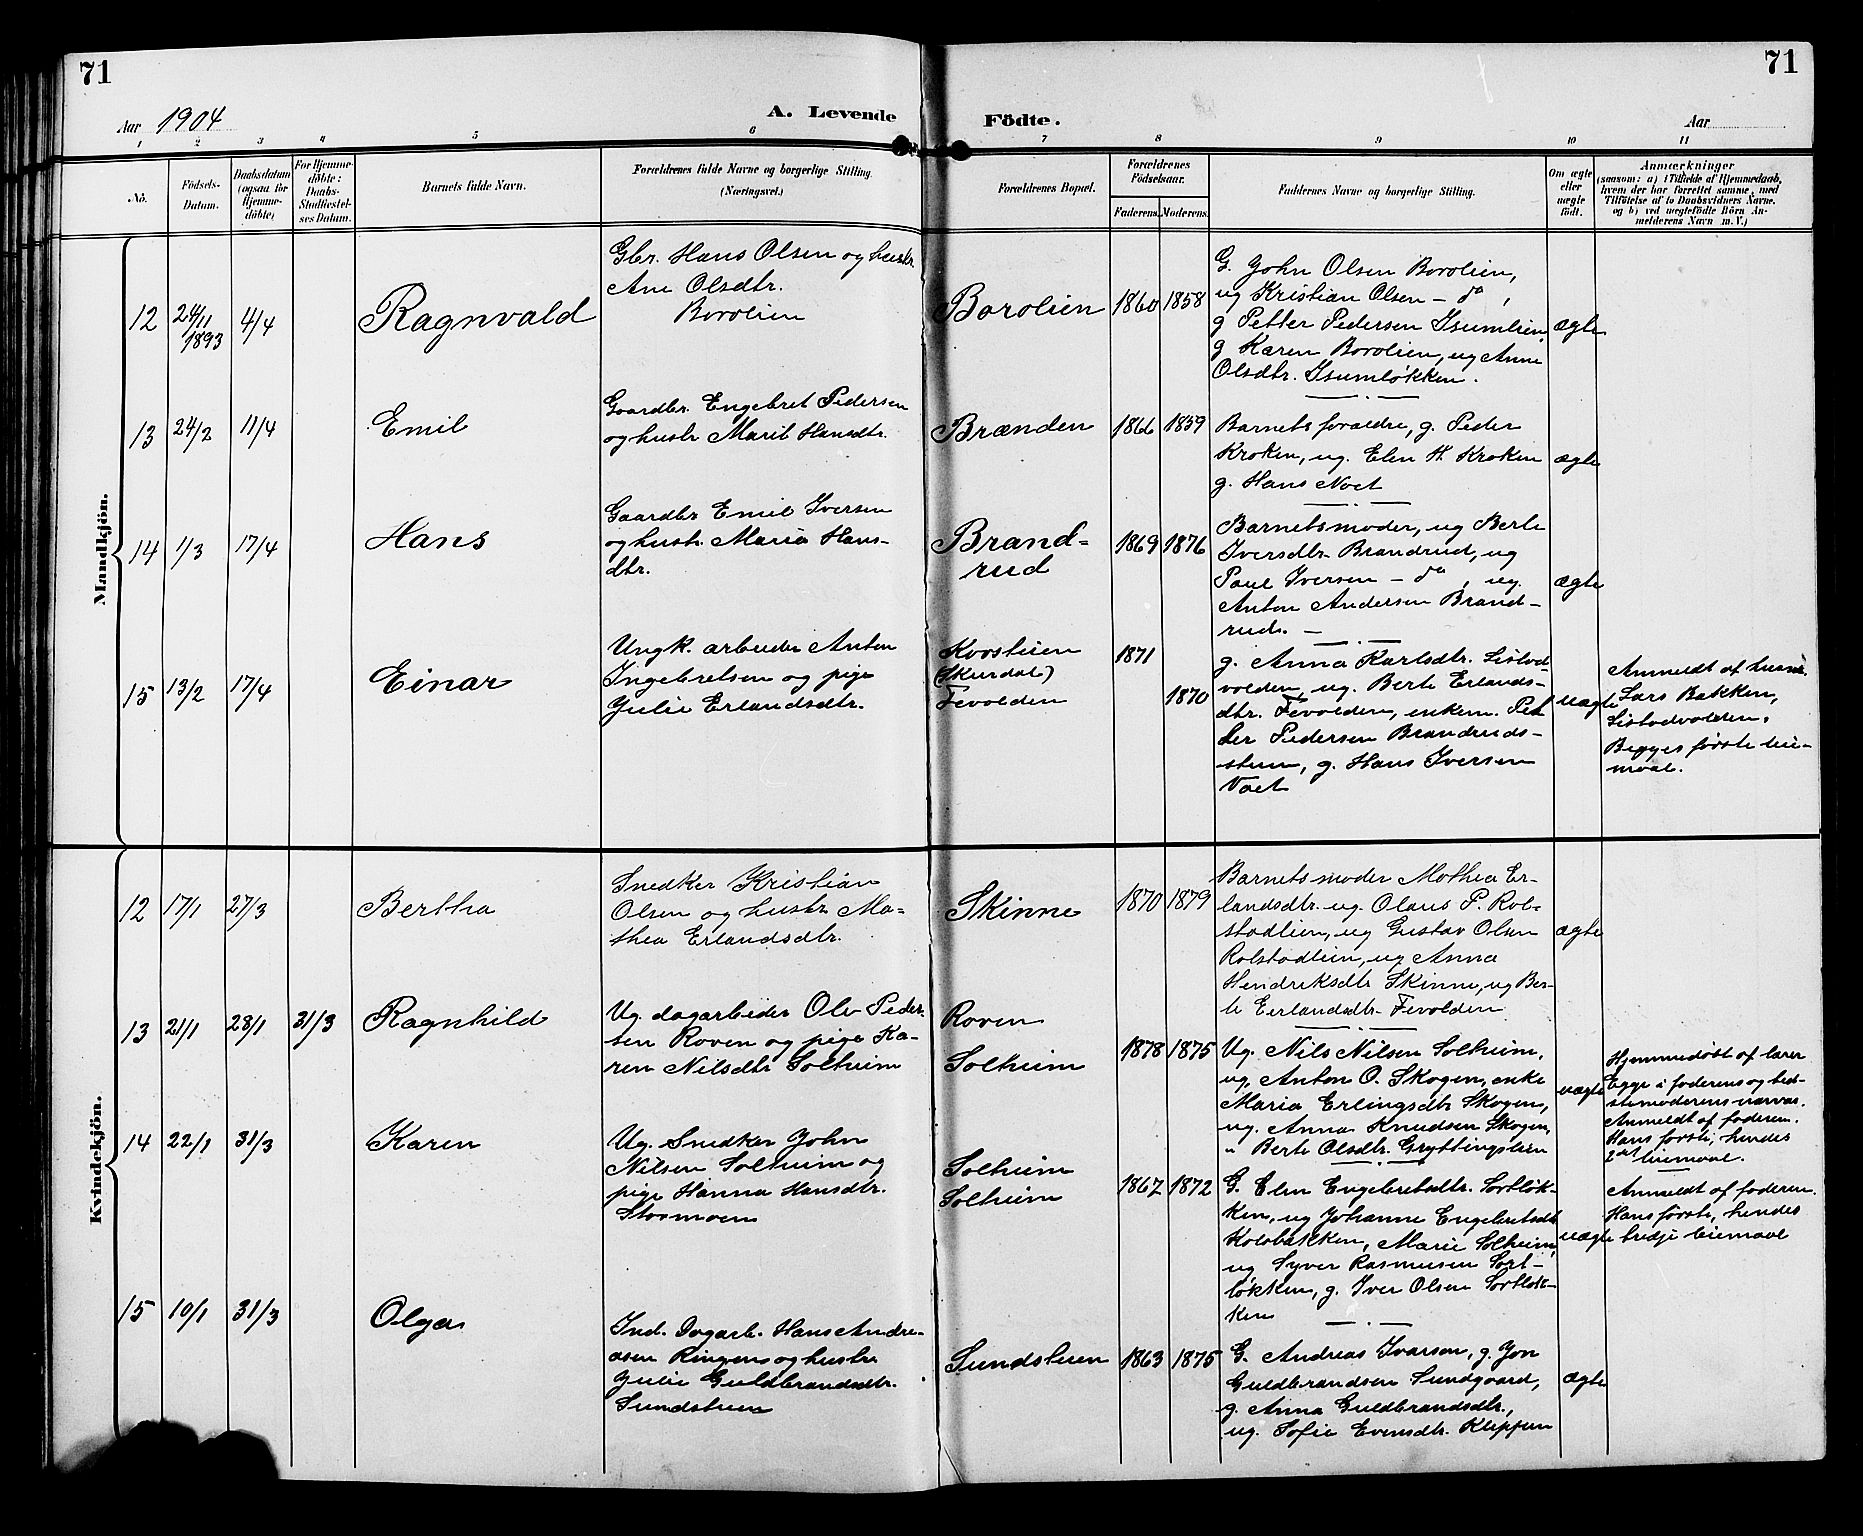 71
71
Aar 1904
A. Levende
Födte.
Aar
1 2 3 4 5 6 7 8 9 10 11
No.
Födsels-
Datum.
Daabsdatum
(ogsaa for
Hjemme-
döbte)
For Hjemme-
döbte:
Daabs-
Stadfæstel-
ses Datum.
Barnets fulde Navn.
Forældrenes fulde Navne og borgerlige Stilling.
(Næringsvei.)
Forældrenes Bopæl.
Forældrenes
Födselsaar.
Faderens. Moderens.
Faddernes Navne og borgerlige Stilling.
Om ægte
eller
uægte
födt.
Anmærkninger
(saasom: a) i Tilfælde af Hjemmedaab,
hvem der har forrettet samme, med
Tilföielse af to Daabsvidners Navne,
og b) ved uegtefödte Börn An-
melderens Navn m. V.)
Mandkjön.
12
24/11
1893
4/4
Ragnvald
Gbr. Hans Olsen og hustr.
Ane Olsdtr.
Borolien
Borolien
1860 1858
G. John Olsen Borolien,
ug Kristian Olsen – do,
g Petter Pedersen Isumlien,
g Karen Borolien, ug Anne
Olsdtr. Isumløkken.
ægte
13
24/2
11/4
Emil
Gaardbr. Engebret Pedersen
og hustr Marit Hansdtr.
Brænden
1866 1859
Barnets forældre, g. Peder
Kroken, ug. Elen H. Kroken
g. Hans Noet
ægte
14
1/3
17/4
Hans
Gaardbr Emil Iversen
og hustr. Maria Hans-
dtr.
Brand-
rud
1869 1876
Barnets moder, ug Berte
Iversdtr. Brandrud, ug
Paul Iversen – do, ug.
Anton Andersen Brand-
rud. –
ægte
15
13/2
17/4
Einar
Ungk. arbeider Anton
Ingebretsen og pige
Julie Erlandsdtr.
(Skurdal)
Fevolden
1871
1870
g. Anna Karlsdtr. Listad-
volden, ug. Berte Erlands-
dtr. Fevolden, enkem. Pet
ter Pedersen Brandruds-
stuen, g. Hans Iversen
Noet
uægte
Anmeldt af husm.
Lars Bakken,
Listadvolden.
Begges første leie-
maal.
Kvindekjön.
12
17/1
27/3
Bertha
Snedker Kristian
Olsen og hustr Ma-
thea Erlandsdtr.
Skinne
1870 1879
Barnets moder Mathea Er-
landsdtr. ug. Olaus P. Rol-
stadlien, ug Gustav Olsen
Rolstadlien, ug Anna
Hendriksdtr Skinne, ug Ber-
te Erlandsdtr. Fevolden
ægte
13
21/1
28/1
31/3
Ragnhild
Ug. dagarbeider Ole Peder-
sen Roven og pige Ka-
ren Nilsdtr Solheim
Roven
Solheim
1878 1875
Ug. Nils Nilsen Solheim,
ug, Anton O. Skogen, enke
Maria Erlingsdtr Skogen,
ug. Anna Knudsen Skogen,
" Berte Olsdtr. Gryttingslien
uægte
Hjemmedøbt af lærer
Egge i faderens og bed-
stemoderens nærvær.
Anmeldt af faderen.
Hans første, hendes
2det leiemaal.
14
22/1
31/3
Karen
Ug. Snedker John
Nilsen Solheim og
pige Hanna Hansdtr.
Stormoen
Solheim
Solheim
1867 1872
G. Elen Engebretsdtr. Sortløk-
ken, ug Johanne Engebretsdtr
Kolobakken, Marie Solheim,
ug Syver Rasmusen Sort-
løkken, g. Iver Olsen Sortløk-
ken
uægte
Anmeldt af faderen.
Hans første, hendes
tredje leiemaal
15
10/1
31/3
Olga
Ind. Dagarb. Hans Andre-
asen Ringen og hustr
Julie Guldbrandsdtr.
Sundstuen
Sundstuen
1863 1875
G. Andreas Ivarson, g. Jon
Guldbrandsen Sundgaard,
g. Anna Guldbrandsdtr.,
ug. Sofie Evensdtr. Klepjun
ægte